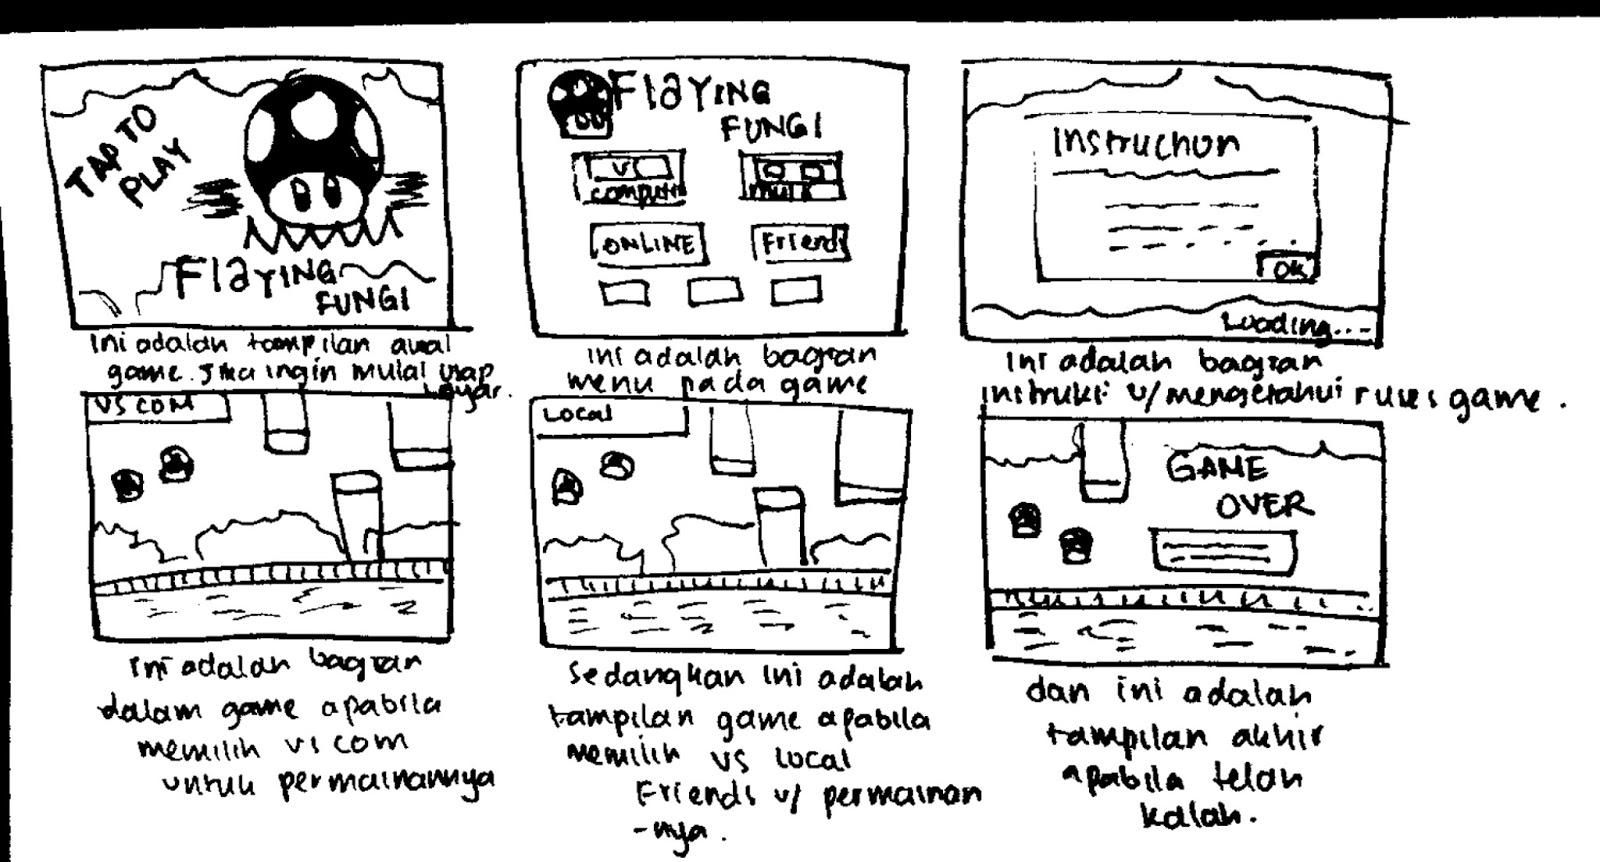 TAP TO
PLAY
Flayıng
FUNGI
Ini adalah tampilan awal
game. Jika ingin mulai usap
layar.
Flayıng
FUNGI
VS
computer
multi
ONLINE
Friend
Ini adalah bagian
menu pada game
Instruction
Ok
Loading...-
Ini adalah bagian
instruksi u/mengetahui rules game.
VS COM
Ini adalah bagian
dalam game apabila
memilih vs com
untuk permainannya
Local
Sedangkan ini adalah
tampilan game apabila
memilih vs local
Friends u/ permainan
-nya.
GAME
OVER
dan ini adalah
tampilan akhir
apabila telah
kalah.